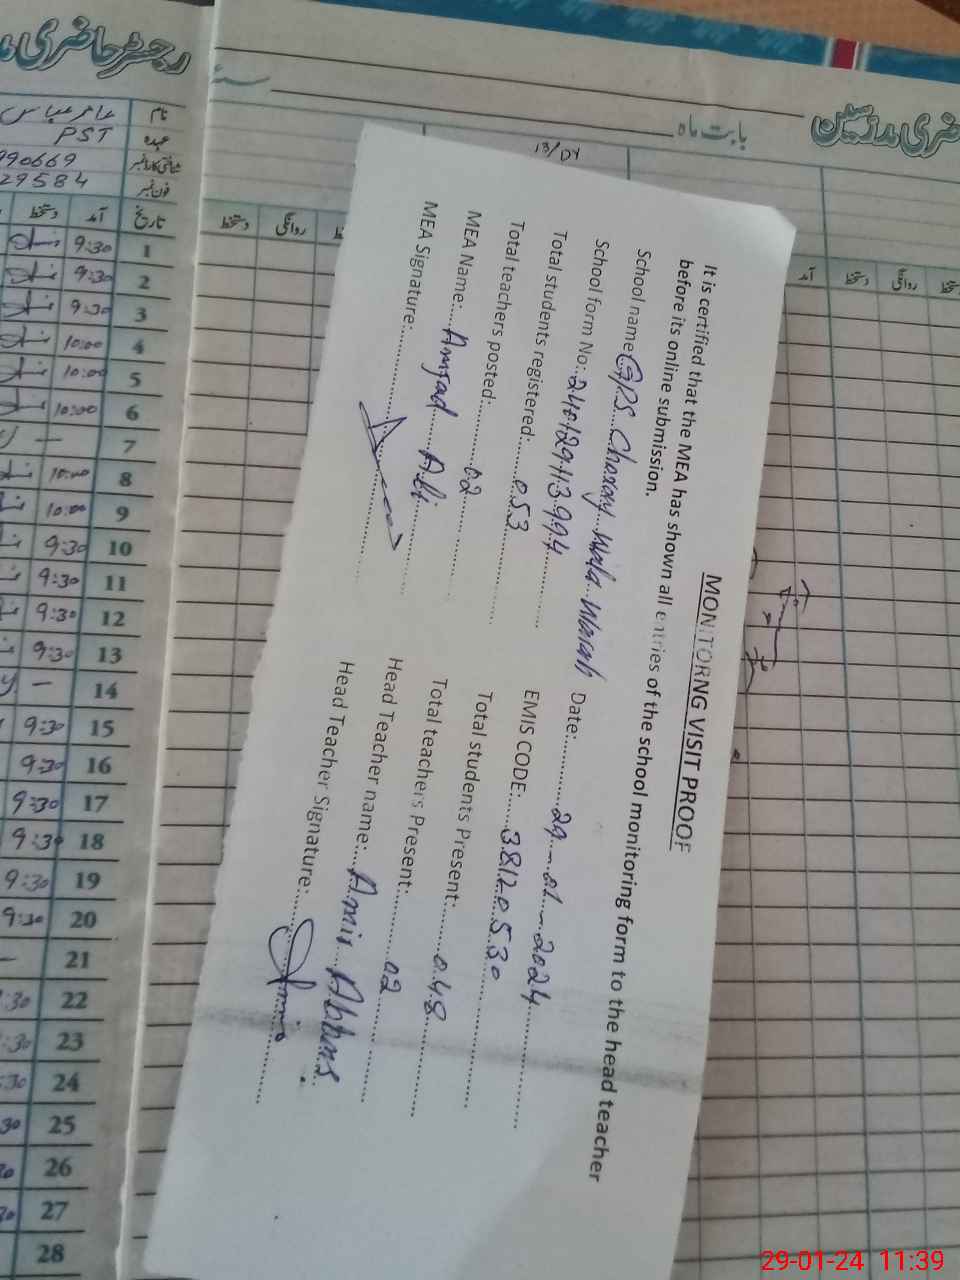 رجسٹر حاضری
نام عامر عباس
عہدہ PST
شناختی کارڈ نمبر 990669
فون نمبر 29584
تاریخ آمد دستخط
1 9:30
2 9:30
3 9:30
4 10:00
5 10:00
6 10:00
7 —
8 10:00
9 10:00
10 9:30
11 9:30
12 9:30
13 9:30
14 —
15 9:30
16 9:30
17 9:30
18 9:30
19 9:30
20 9:30
21 —
22 :30
23 :30
24 :30
25 30
26
27 30
28
بابت ماہ
روانگی دستخط
آمد دستخط روانگی دستخط
MONITORNG VISIT PROOF
It is certified that the MEA has shown all entries of the school monitoring form to the head teacher
before its online submission.
School name GPS Date: 29-01-2024
School form No: EMIS CODE: 38120530
Total students registered: 053 Total students Present: 048
Total teachers posted: 02 Total teachers Present: 02
MEA Name: Amjad Ali Head Teacher name: Amir Abbas
MEA Signature: Head Teacher Signature:
29-01-24 11:39